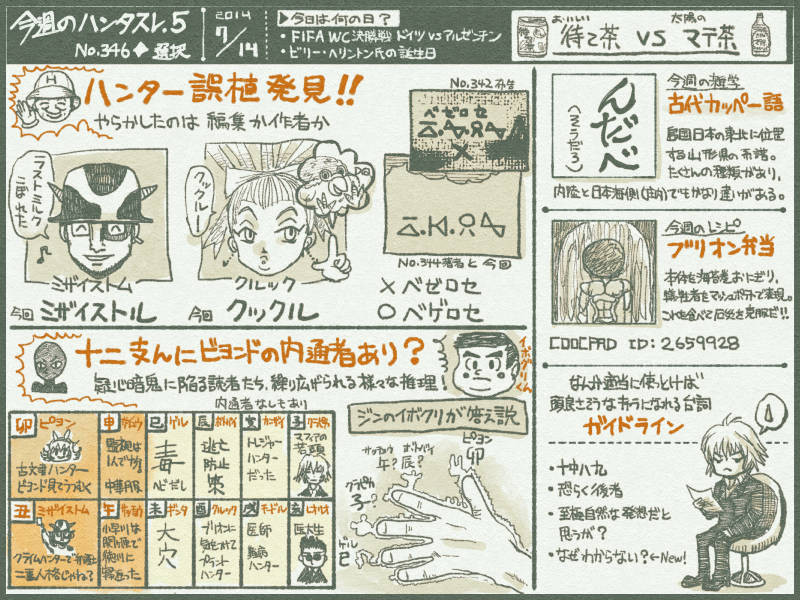 今週のハンタスレ.5
No.346◆選択
2014
7/14
今日は何の日?
・FIFA WC決勝戦 ドイツ VS アルゼンチン
・ビリー・ヘリントン氏の誕生日
お〜いしい 太陽の
待て茶 VS マテ茶
H
ハンター誤植発見!!
やらかしたのは 編集か作者か
ラストミルク
こぼれた
♪
クックルー
ミザイストム
今回 ミザイストル
クルック
今回 クックル
No.342
ベゼロセ
×
No.344
×ベゼロセ
○ベゲロセ
十二支んにビヨンドの内通者あり?
疑心暗鬼に陥る読者たち、繰り広げられる様々な推理!
内通者なしもあり
卯 ピヨン
古文書ハンター
ビヨンド見てうつむく
申
監視は
1人でか!
中華服
巳 ゲル
毒
辰
逃亡
防止
策
亥
トレジャー
ハンター
だった
子
マフィアの
若頭
丑 ミザイストム
クライムハンターで弁護士
二重人格じゃね?
午
未 ギンタ
大穴
酉 クルック
プラント
ハンター
戌 チードル
医師
難病
ハンター
亥
医大生
イボグリくん
ジンのイボクリが変え説
ピヨン
卯
午?
辰?
クラピカ
子
ゲル
巳
んだべ
(そうだろ)
今週の雑学
古代カッパー語
島国日本の東北に位置
する山形県の方言。
たくさんの種類があり、
内陸と日本海側(庄内)でもかなり違いがある。
今週のレシピ
ブリオン弁当
本体を海苔巻おにぎり、
犠牲者をマッシュポテトで表現。
これを食べて厄災を克服だ!!
COOCPAD ID:2659928
なんか適当に使っとけば
頭良さそうなキャラになれる台詞
ガイドライン
・十中八九
・恐らく後者
・至極自然な発想だと
思うが?
・なぜわからない?←New!